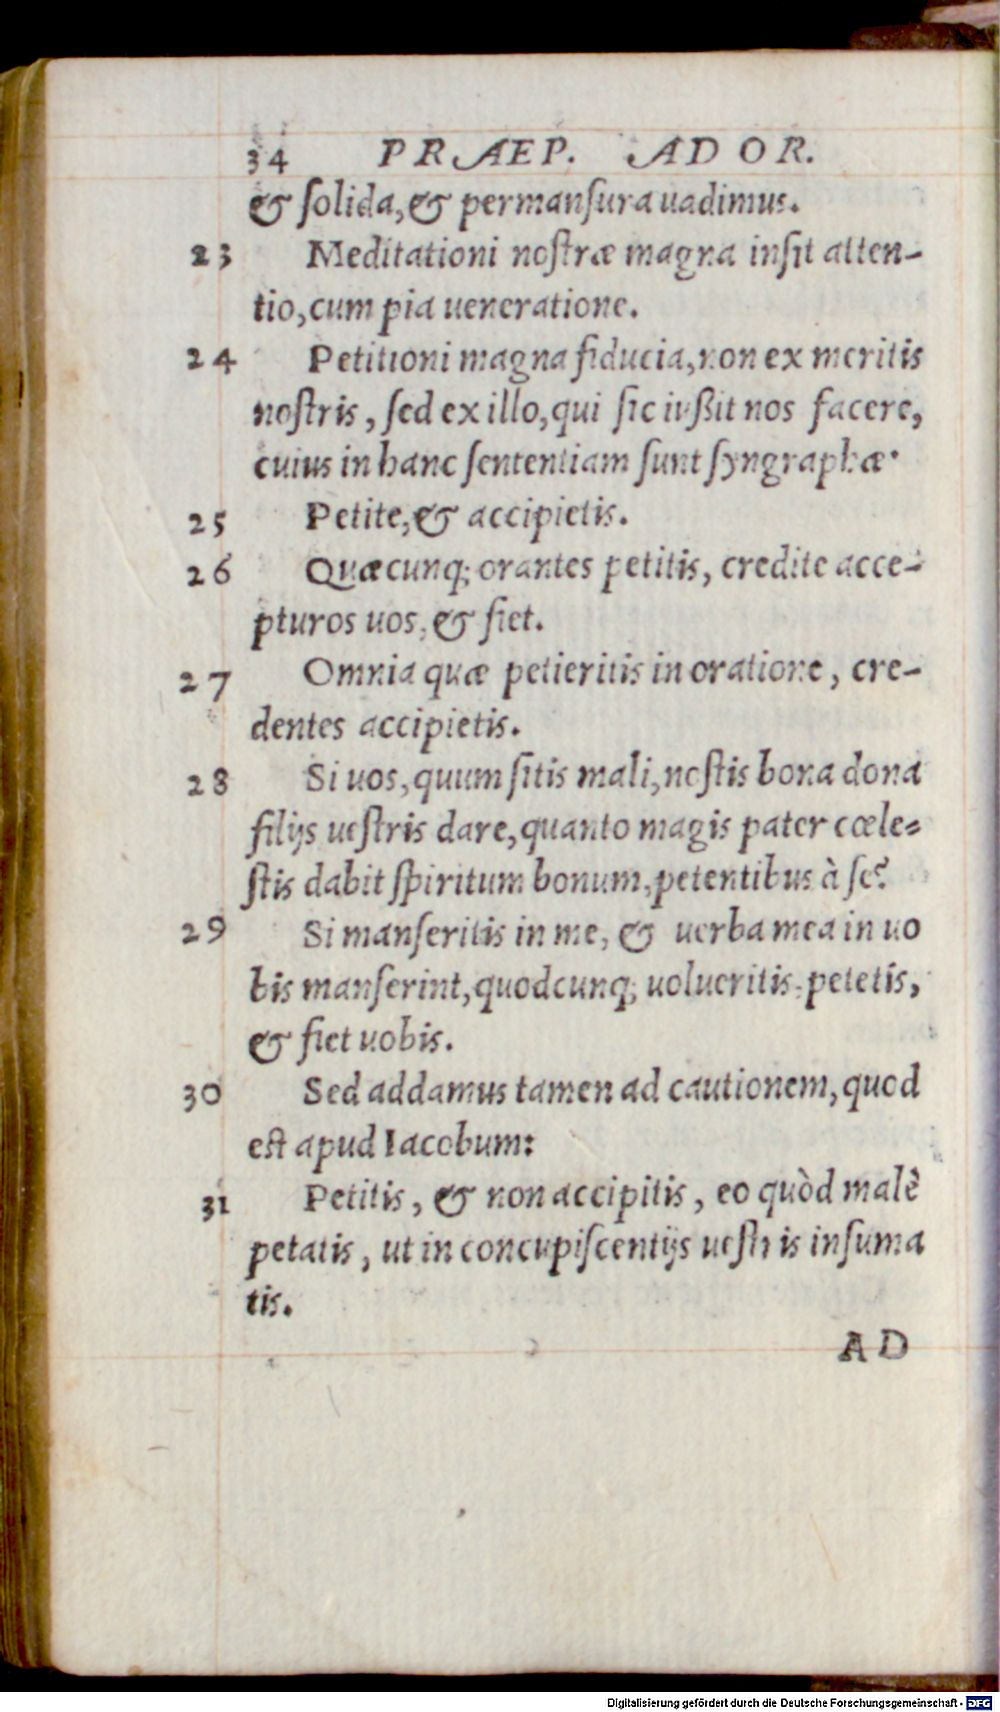 34 PRAEP. AD OR.
& ſolida, & permanſura uadimus.
23 Meditationi noſtræ magna inſit atten-
tio, cum pia ueneratione.
24 Petitioni magna fiducia, non ex meritis
noſtris, ſed ex illo, qui ſic iußit nos facere,
cuius in hanc ſententiam ſunt ſyngraphæ.
25 Petite, & accipietis.
26 Quæcunq; orantes petitis, credite acce-
pturos uos, & fiet.
27 Omnia quæ petieritis in oratione, cre-
dentes accipietis.
28 Si uos, quum ſitis mali, noſtis bona dona
filijs ueſtris dare, quanto magis pater cœle-
ſtis dabit ſpiritum bonum, petentibus à ſe?
29 Si manſeritis in me, & uerba mea in uo
bis manſerint, quodcunq; uolueritis, petetis,
& fiet uobis.
30 Sed addamus tamen ad cautionem, quod
eſt apud Iacobum:
31 Petitis, & non accipitis, eo quòd malè
petatis, ut in concupiſcentijs ueſtris inſuma
tis.
AD
Digitalisierung gefördert durch die Deutsche Forschungsgemeinschaft - DFG